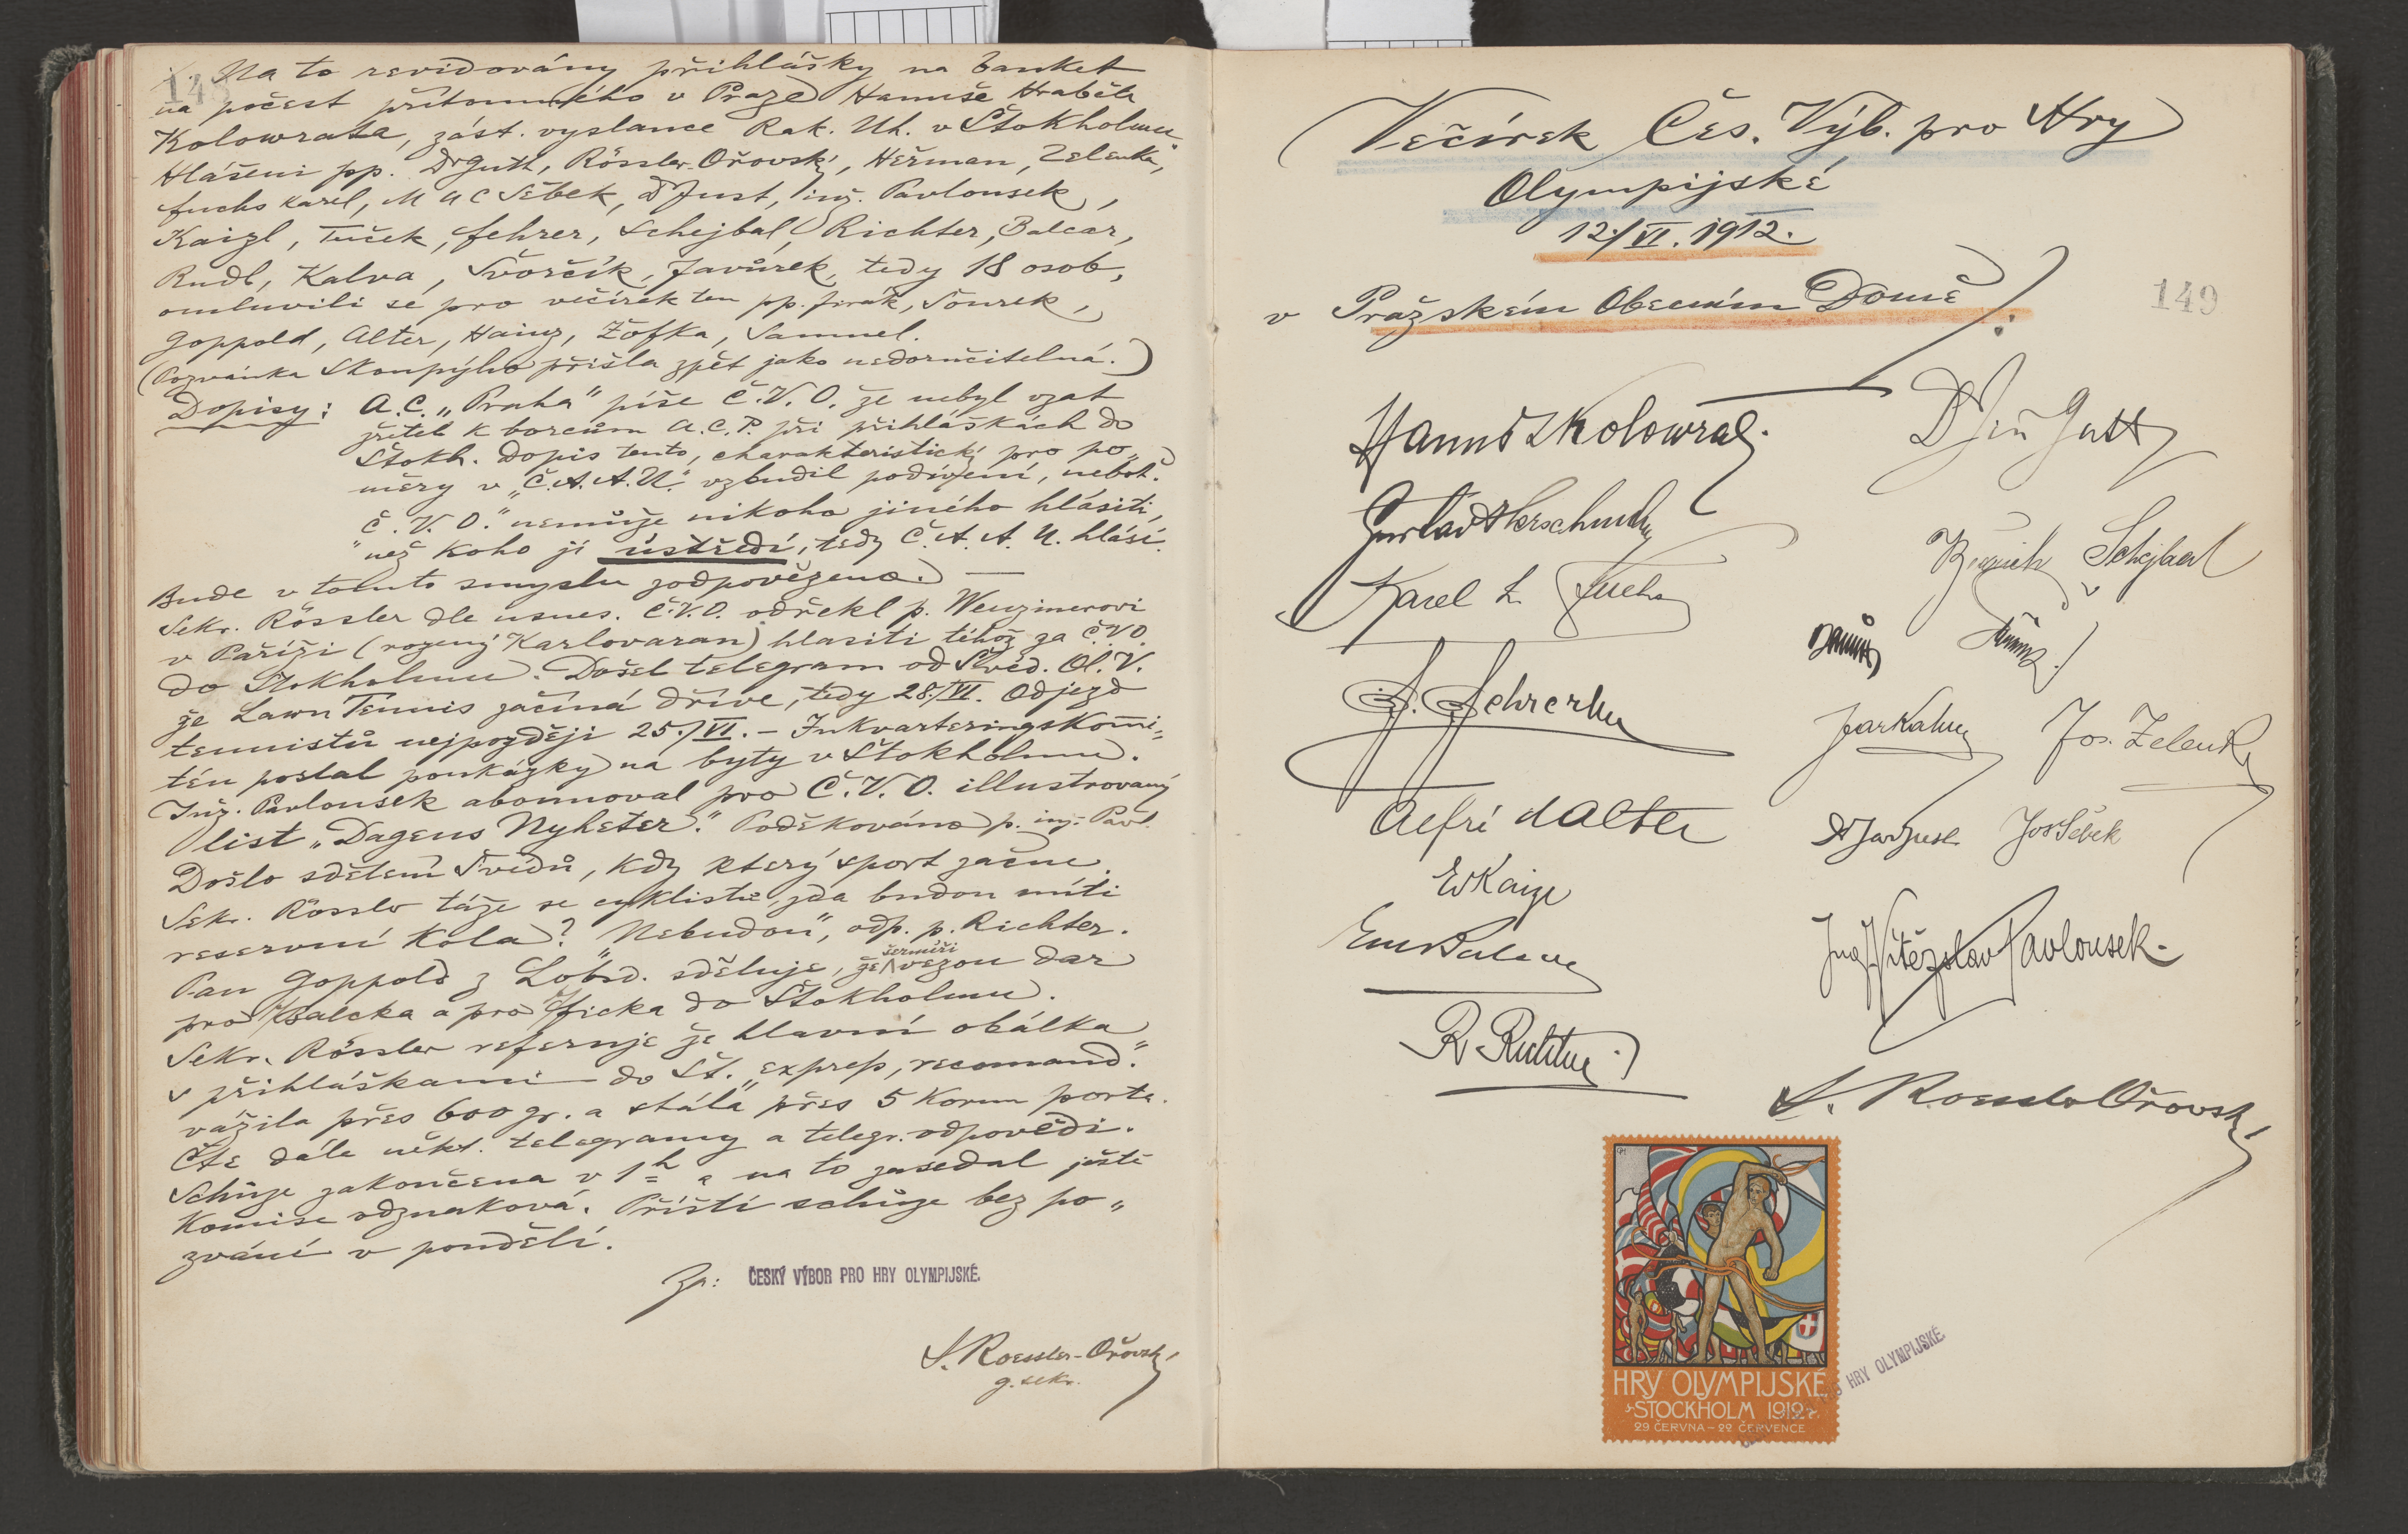 148
Na to revidovány přihlášky na banket
na počest přítomného v Praze Hanuše Hraběte
Kolowrata, zást. vyslance Rak. Uh. v Štokholmu
Hlášeni pp. Dr Guth, Rössler-Ořovský, Heřman, Zelenka,
Fuchs Karel, MUC Šebek, Dr Just, inž. Pavlousek,
Kaizl, Tuček, Fehrer, Schejbal, Richter, Balcar,
Rudl, Kalva, Svorčík, Javůrek, tedy 18 osob,
omluvili se pro večírek ten pp. Jirák, Šourek,
Goppold, Alter, Hainz, Žofka, Samuel.
(Pozvánka Skoupýho přišla zpět jako nedoručitelná.)
Dopisy: A.C. „Praha" píše Č.V.O. že nebyl vzat
zřetel k borcům A.C.P. při přihláškách do
Štokh. Dopis tento, charakteristický pro po„
měry v „Č.A.A.U." vzbudil podivení, neboť
„Č.V.O." nemůže nikoho jiného hlásiti,
než koho jí ústředí, tedy Č.A.A.U. hlásí.
Bude v tomto smyslu zodpovězeno. —
Sekr. Rössler dle usnes. Č.V.O. odřekl p. Wenzmerovi
v Paříži (rozený Karlovaran) hlasiti téhož za Č.V.O.
do Stokholmu. Došel telegram od Švéd. Ol. V.
že Lawn Tennis začíná dříve, tedy 28./VI. Odjezd
tennistů nejpozději 25./VI. – Inkvarteringskomi„
tén poslal poukázky na byty v Štokholmu.
Inž. Pavlousek abonnoval pro Č.V.O. illustrovaný
list „Dagens Nyheter." Poděkováno p. inž. Pavl.
Došlo sdělení Švédů, kdy který sport začne.
Sekr. Rössler táže se cyklistů, zda budou míti
reservní kola? „Nebudou", odp. p. Richter.
Pan Goppold z Lobsd. sděluje, že šermíři vezou dar
pro Balcka a pro Fricka do Štokholmu.
Sekr. Rössler referuje že hlavní obálka
s přihláškami do Št. „express, recomand."
vážila přes 600 gr. a stála přes 5 Korun porta.
Čte dále někt. telegramy a telegr. odpovědi.
Schůze zakončena v 1h a na to zasedal ještě
Komise odznaková. Příští schůze bez po„
zvání v pondělí.
Za: ČESKÝ VÝBOR PRO HRY OLYMPIJSKÉ.
J. Roessler-Ořovský
g. sekr.
Večírek Čes. Výb. pro Hry
Olympijské
12./VI. 1912.
v Pražském Obecním Domě
149
Hanuš Kolowrat.
Dr Jiří Guth
Jindřich Schejbal
Karel L. Fuchs
J. Fehrer
Jar Kalva
Jos. Zelenka
Alfréd Alter
Dr Jar Just
Jos Šebek
E Kaizl
Em Balcar
Ing. Vítězslav Pavlousek.
R. Richter
J. Roessler Ořovský
HRY OLYMPIJSKÉ
STOCKHOLM 1912
29 ČERVNA – 22 ČERVENCE
PRO HRY OLYMPIJSKÉ.